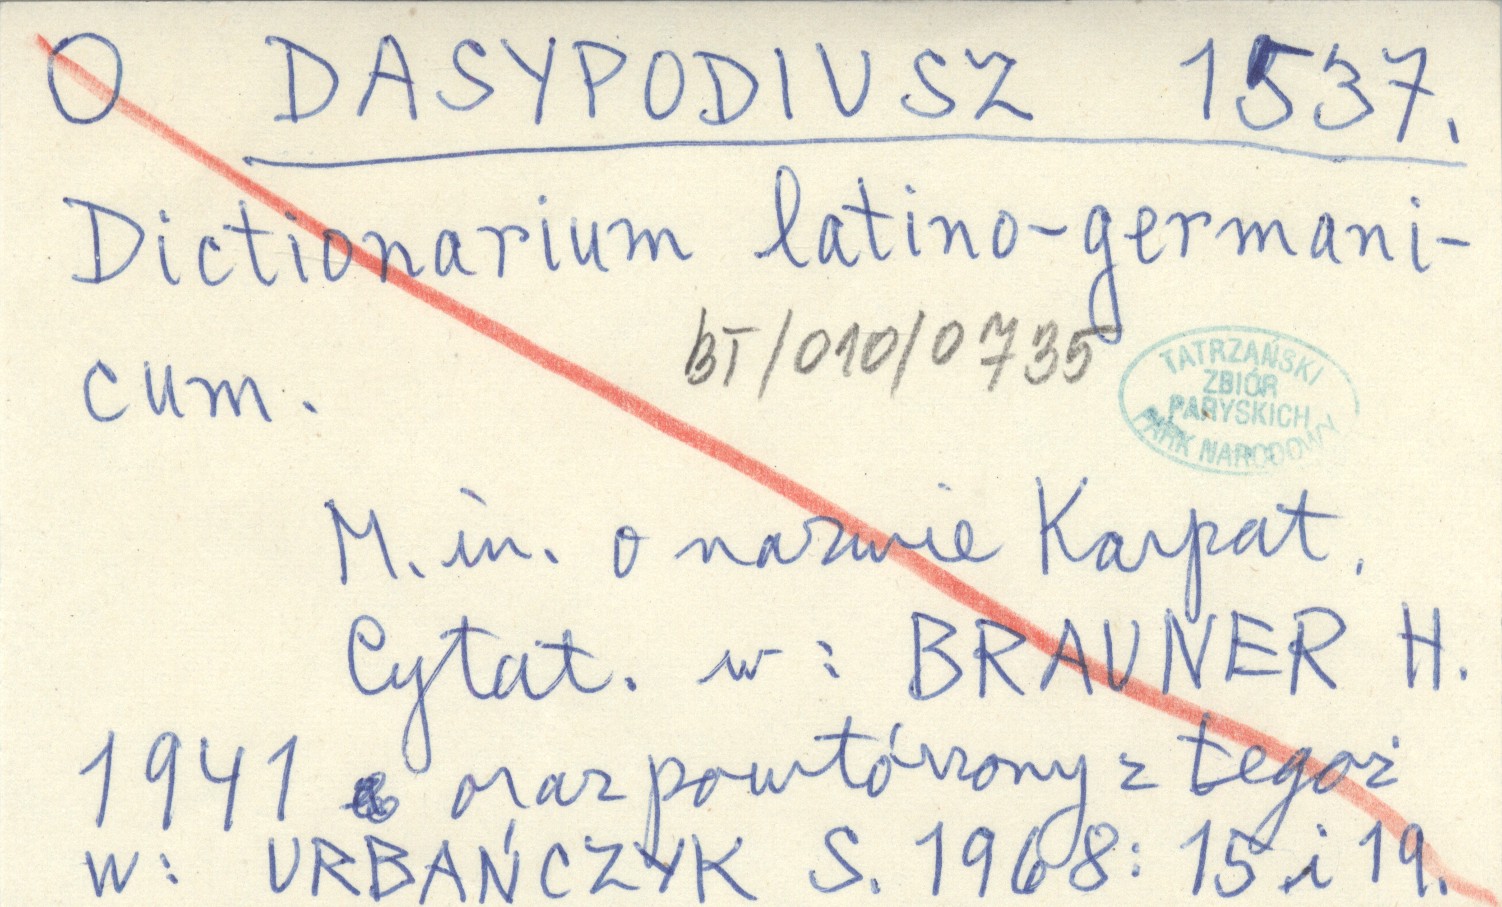 O DASYPODIUSZ 1537.
Dictionarium latino-germani-
cum.
BT/010/0735
TATRZAŃSKI
ZBIÓR
PARYSKICH
PARK NARODOWY
M. in. o nazwie Karpat.
Cytat. w: BRAUNER H.
1941 oraz powtórzony z tegoż
w: URBAŃCZYK S. 1968: 15 i 19.